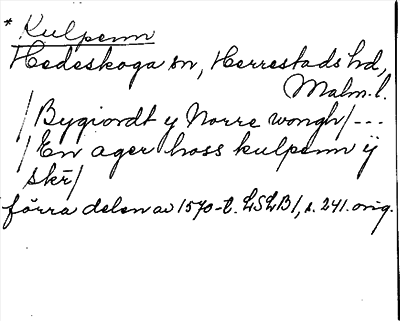 * Kulpenn
Hedeskoga sn, Herrestads hd,
Malm.l.
/Bygiordt y Norre wongh/---
/En ager hoss kulpenn ij
skr/
förra delen av 1570-t. LSLB1, s. 241. orig.